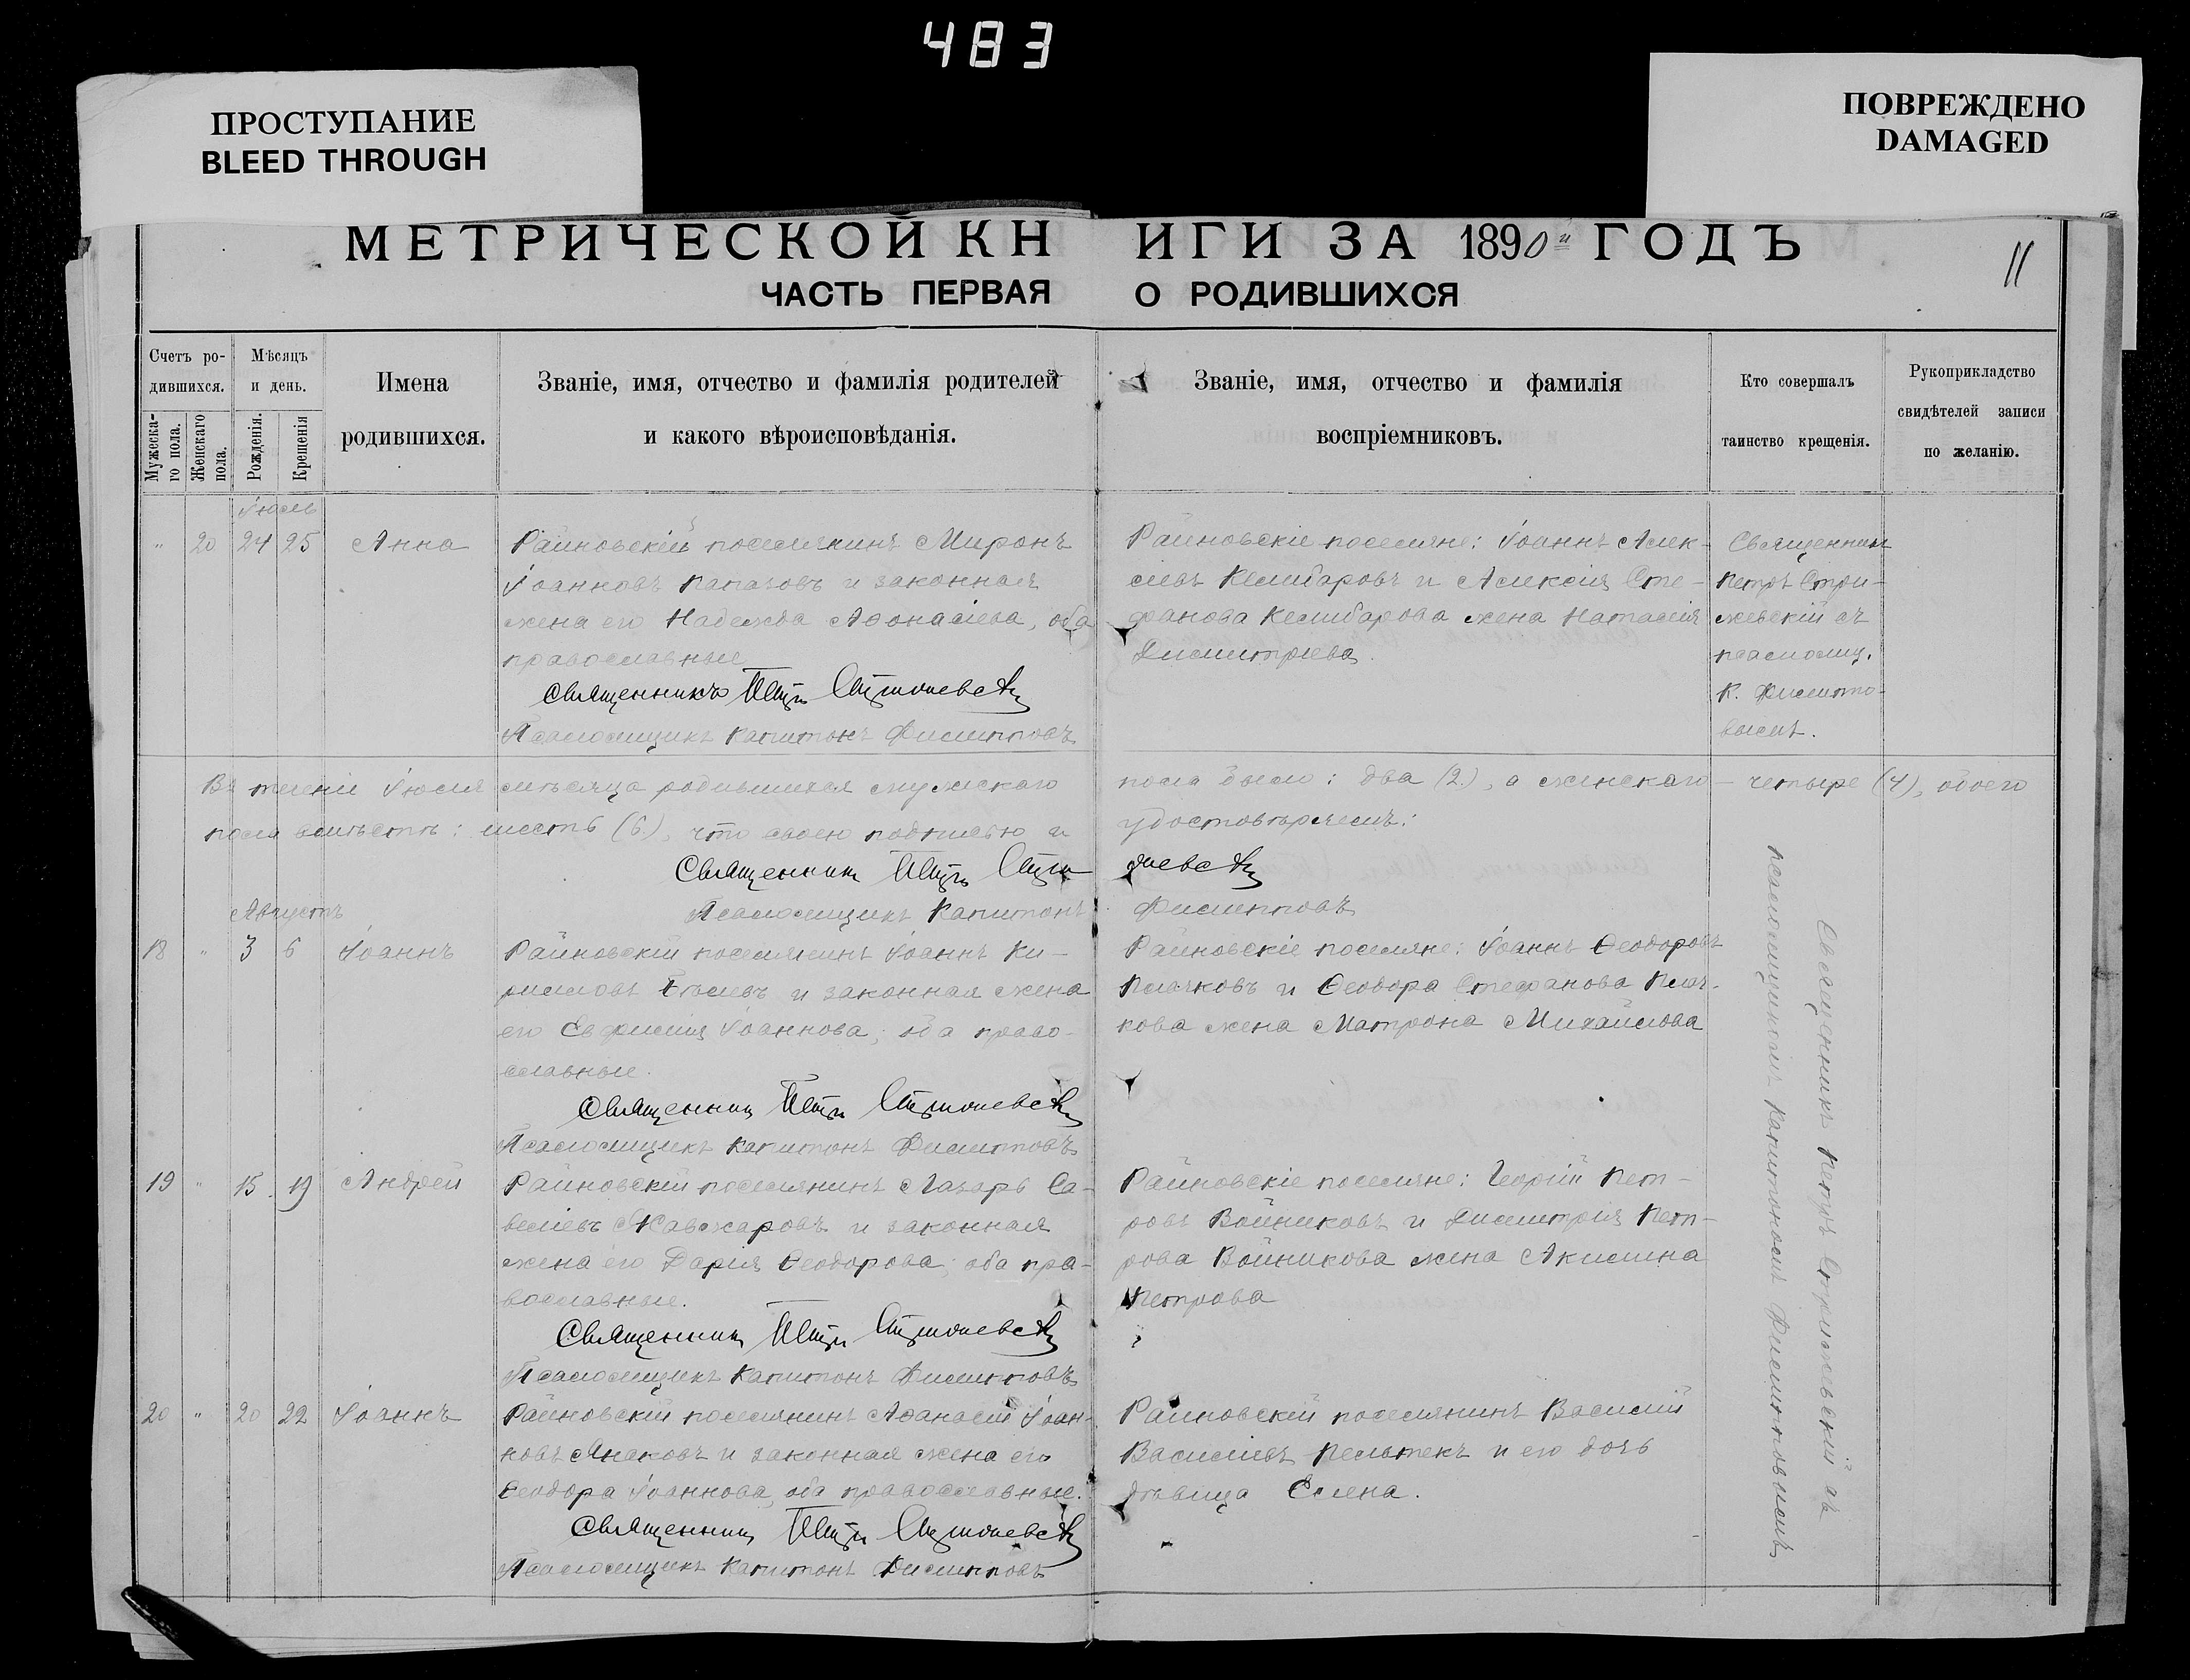 483
ПРОСТУПАНИЕ
BLEED THROUGH
ПОВРЕЖДЕНО
DAMAGED
МЕТРИЧЕСКОЙ КНИГИ ЗА 1890й ГОДЪ
11
ЧАСТЬ ПЕРВАЯ О РОДИВШИХСЯ
Счетъ ро-
дившихся.
Мужеска-
го пола.
Женскаго
пола.
Мѣсяцъ
и день.
Рожденія.
Крещенія
Имена
родившихся.
Званіе, имя, отчество и фамилія родителей
и какого вѣроисповѣданія.
Званіе, имя, отчество и фамилія
воспріемниковъ.
Кто совершалъ
таинство крещенія.
Рукоприкладство
свидѣтелей записи
по желанію.
Іюль
" 20 24 25 Анна
Райновскій поселянинъ Миронъ
Іоанновъ Капазовъ и законная
жена его Надежда Аѳонасіева, оба
православные
Священникъ Петръ Стрижевскій
Псаломщикъ Капитонъ Филипповъ
Райновскіе поселяне: Іоаннъ Алек-
сіевъ Келибаровъ и Алексія Сте-
фанова Келибарова жена Наталія
Димитріева.
Священникъ
Петръ Стри-
жевскій съ
псаломщ.
К. Филиппо-
вымъ.
Въ теченіи Іюля мѣсяца родившихся мужскаго пола было: два (2), а женскаго – четыре (4), обоего
пола вмѣстѣ: шесть (6), что своею подписью и удостовѣряемъ:
Священникъ Петръ Стрижевскій
Псаломщикъ Капитонъ Филипповъ
Августъ
18 " 3 6 Іоаннъ
Райновскій поселянинъ Іоаннъ Ки-
рилловъ Бѣлевъ и законная жена
его Евфимія Іоаннова; оба право-
славные.
Священникъ Петръ Стрижевскій
Псаломщикъ Капитонъ Филипповъ
Райновскіе поселяне: Іоаннъ Ѳеодоровъ
Плачковъ и Ѳеодора Стефанова Плач-
кова жена Матрона Михайлова
19 " 15 19 Андрей
Райновскій поселянинъ Лазарь Са-
веліевъ Кавжаровъ и законная
жена его Дарія Ѳеодорова; оба пра-
вославные.
Священникъ Петръ Стрижевскій
Псаломщикъ Капитонъ Филипповъ
Райновскіе поселяне: Георгій Пет-
ровъ Войниковъ и Димитрія Пет-
рова Войникова жена Акилина
Петрова
20 " 20 22 Іоаннъ
Райновскій поселянинъ Аѳанасій Іоан-
новъ Янаковъ и законная жена его
Ѳеодора Іоаннова, оба православные.
Священникъ Петръ Стрижевскій
Псаломщикъ Капитонъ Филипповъ
Райновскій поселянинъ Василій
Василіевъ Пельтекъ и его дочь
дѣвица Елена.
Священникъ Петръ Стрижевскій съ
псаломщикомъ Капитономъ Филипповымъ